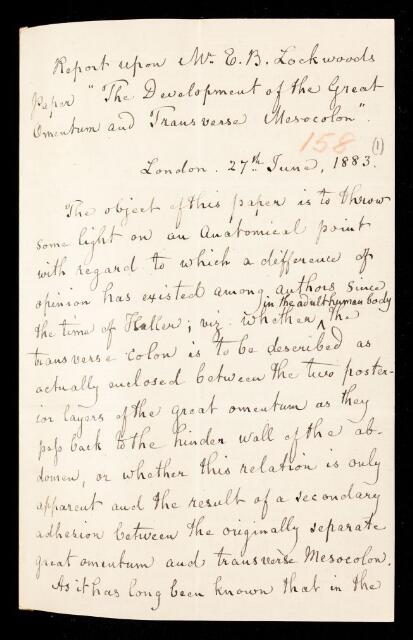 Report upon Mr. C. B. Lockwoods
Paper "The Development of the Great
Omentum and Transverse Mesocolon".
158 (1)
London. 27th June, 1883.
The object of this paper is to throw
some light on an anatomical point
with regard to which a difference of
opinion has existed among authors since
in the adult human body
the time of Haller; viz. whether ^ the
transverse colon is to be described as
actually enclosed between the two poster-
ior layers of the great omentum as they
pass back to the hinder wall of the ab-
domen, or whether this relation is only
apparent and the result of a secondary
adhesion between the originally separate
great omentum and transverse Mesocolon.
As it has long been known that in the